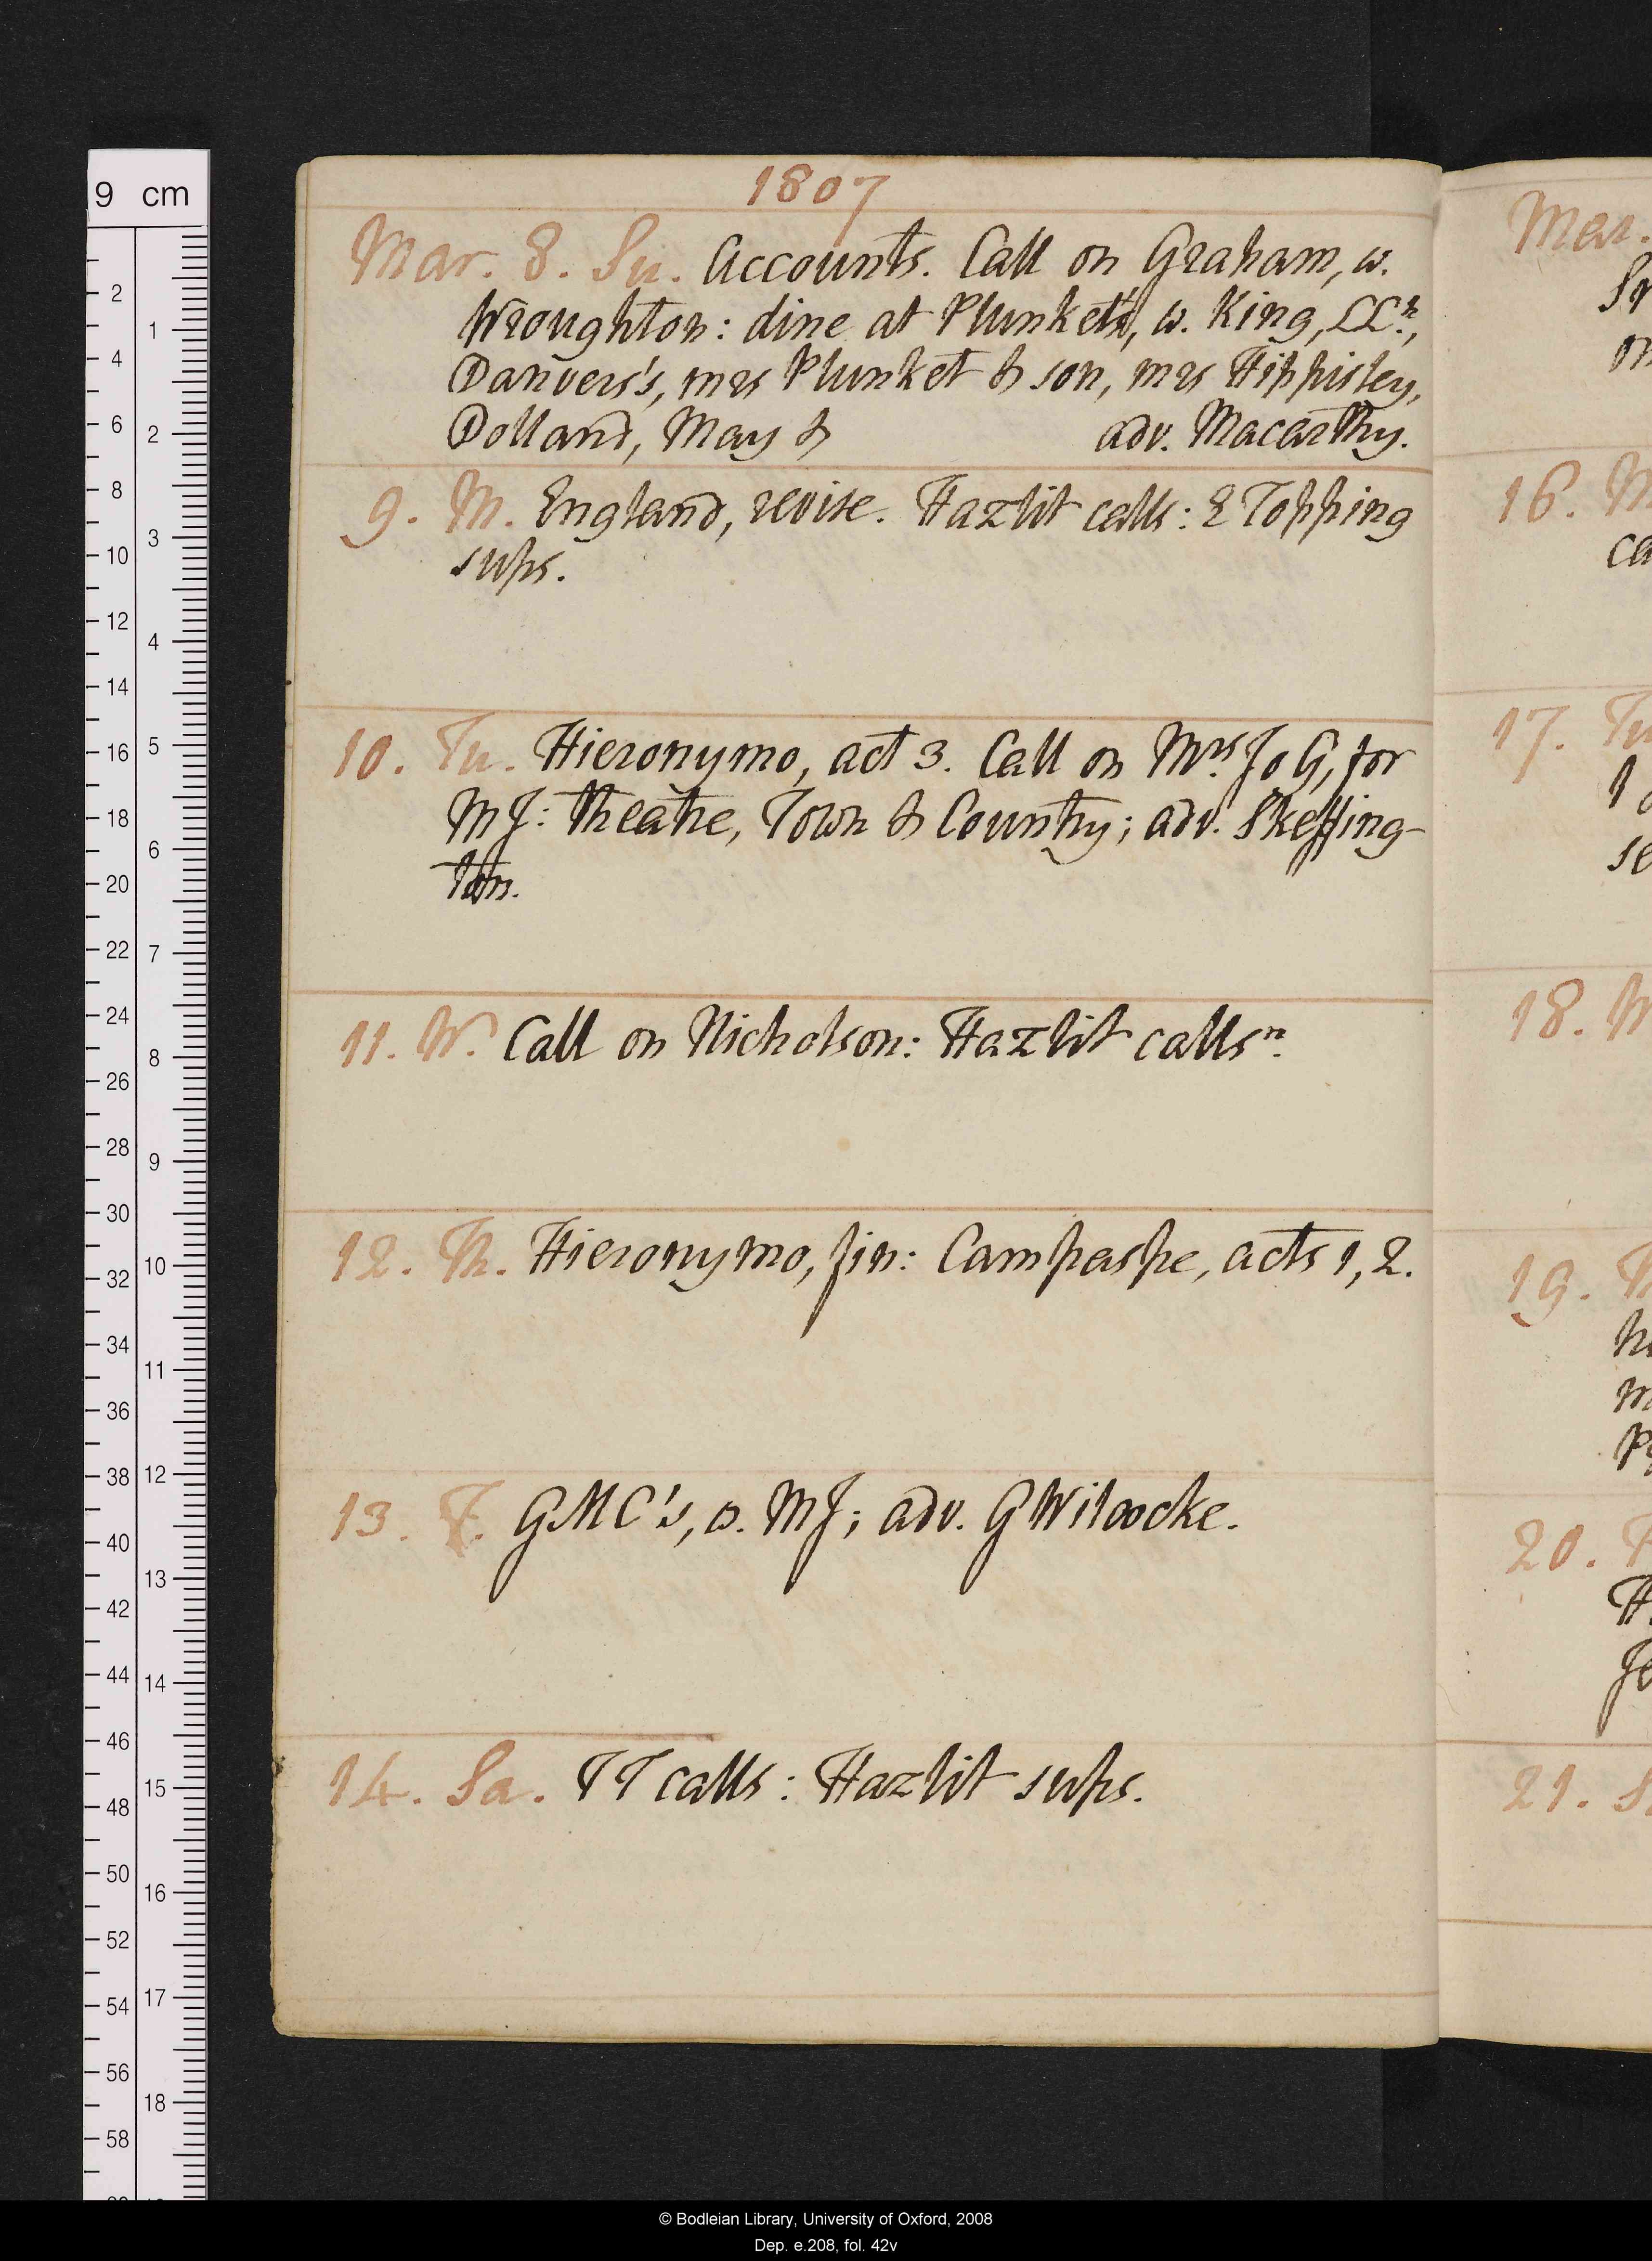 1807
Mar. 8. Su. Accounts. Call on Graham, w.
Wroughton: dine at Plunket's, w. King, LLn.,
Danvers's, mrs Plunket & son, mrs Hippisley,
Dolland, May & adv. Macarthy.
9. M. England, revise. Hazlit calls: E Topping
sups.
10. Tu. Hieronymo, act 3. Call on Mrs. Jo G, for
MJ: theatre, Town & Country; adv. Skeffing-
ton.
11. W. Call on Nicholson: Hazlit callsn.
12. Th. Hieronymo, fin: Campaspe, acts 1, 2.
13. F. GMC's, w. MJ; adv. G Wilcocke.
14. Sa. TT calls: Hazlit sups.
Mar.
16. M
ca
17. Tu
18.
19. Th
20. F
21. S
9 cm
2
4
6
8
10
12
14
16
18
20
22
24
26
28
30
32
34
36
38
40
42
44
46
48
50
52
54
56
58
1
2
3
4
5
6
7
8
9
10
11
12
13
14
15
16
17
18
© Bodleian Library, University of Oxford, 2008
Dep. e.208, fol. 42v